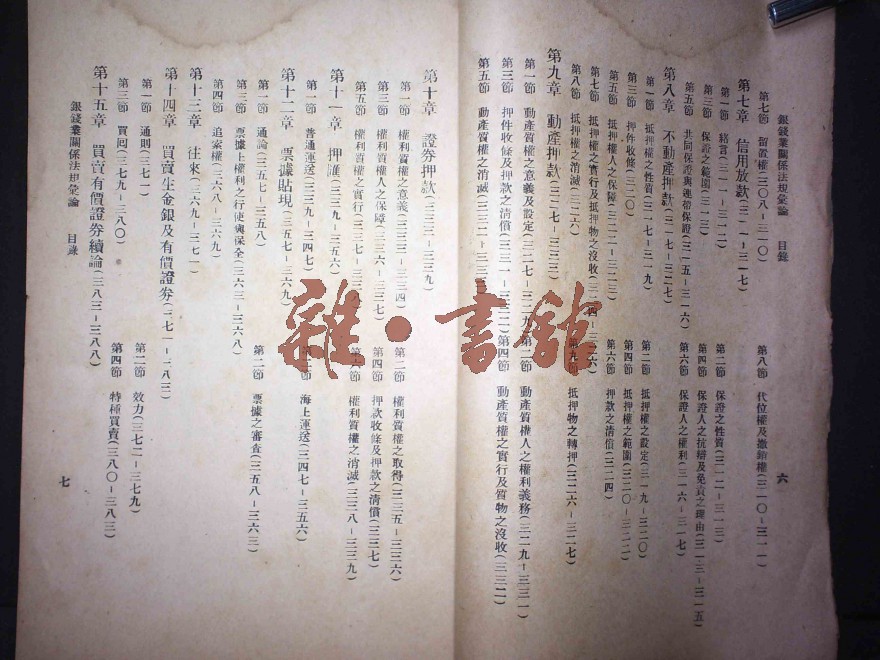 銀錢業關係法規彙論　目錄
六
第七節　留置權(三〇八－三一〇)
第八節　代位權及撤銷權(三一〇－三一一)
第七章　信用放款(三一一－三一七)
第一節　緒言(三一一－三一二)
第二節　保證之性質(三一二－三一三)
第三節　保證之範圍(三一三)
第四節　保證人之抗辯及免責之理由(三一三－三一五)
第五節　共同保證與連帶保證(三一五－三一六)
第六節　保證人之權利(三一六－三一七)
第八章　不動產押款(三一七－三二七)
第一節　抵押權之性質(三一七－三一九)
第二節　抵押權之設定(三一九－三二〇)
第三節　押件收條(三二〇)
第四節　抵押權之範圍(三二〇－三二二)
第五節　抵押權人之保障(三二二－三二三)
第六節　押款之清償(三二四)
第七節　抵押權之實行及抵押物之沒收(三二四－三二六)
第八節　抵押權之消滅(三二六)
第九節　抵押物之轉押(三二六－三二七)
第九章　動產押款(三二七－三三三)
第一節　動產質權之意義及設定(三二七－三二九)
第二節　動產質權人之權利義務(三二九－三三一)
第三節　押件收條及押款之清償(三三一－三三二)
第四節　動產質權之實行及質物之沒收(三三二)
第五節　動產質權之消滅(三三二－三三三)
第十章　證券押款(三三三－三三九)
第一節　權利質權之意義(三三三－三三四)
第二節　權利質權之取得(三三五－三三六)
第三節　權利質權人之保障(三三六－三三七)
第四節　押款收條及押款之清償(三三七)
第五節　權利質權之實行(三三七－三三八)
第六節　權利質權之消滅(三三八－三三九)
第十一章　押匯(三三九－三五六)
第一節　普通運送(三三九－三四七)
第二節　海上運送(三四七－三五六)
第十二章　票據貼現(三五七－三六九)
第一節　通論(三五七－三五八)
第二節　票據之審查(三五八－三六三)
第三節　票據上權利之行使與保全(三六三－三六八)
第四節　追索權(三六八－三六九)
第十三章　往來(三六九－三七一)
第十四章　買賣生金銀及有價證券(三七一－三八三)
第一節　通則(三七一)
第二節　效力(三七二－三七九)
第三節　買回(三七九－三八〇)
第四節　特種買賣(三八〇－三八三)
第十五章　買賣有價證券續論(三八三－三八八)
銀錢業關係法規彙論　目錄
七
雜·書館